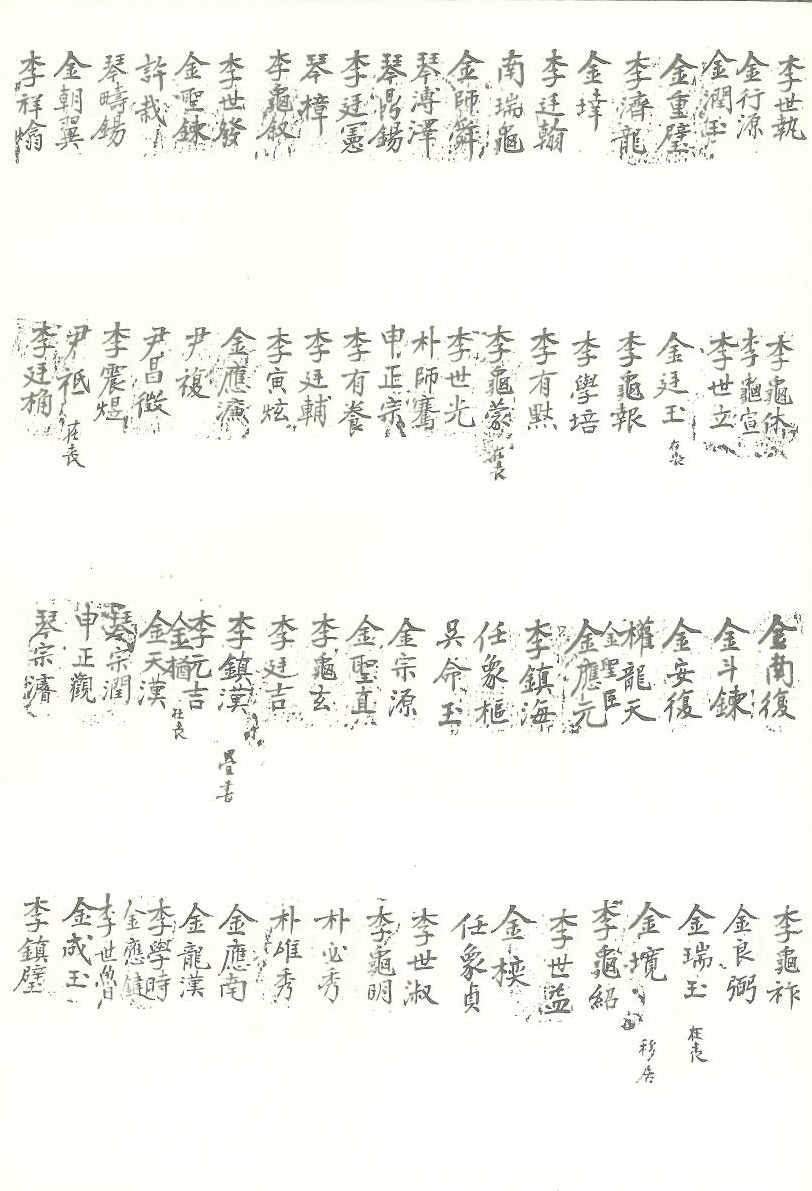 李世執
金行源
金潤玉
金重璧
李濟龍
金墇
李廷翰
南瑞龜
金師舜
琴溥澤
琴鼎錫
李廷憲
琴樟
李龜敘
李世發
金聖鍊
許栽
琴疇錫
金朝翼
李祥翕
李龜休
李龜宣
李世立
金廷玉 在喪
李龜報
李學培
李有點
李龜蒙 在喪
李世光
朴師騫
申正宗
李有養
李廷輔
李寅炫
金應濂
尹複
尹昌徵
李震煜
尹祗 在喪
李廷桷
金南復
金斗鍊
金安復
權龍天
金聖臣
金應元
李鎭海
任象樞
吳命玉
金宗源
金聖直
李龜玄
李廷吉
李鎭漢 疊書
李元吉
金橚 在喪
金天漢
琴宗潤
申正觀
琴宗濬
李龜祚
金良弼
金瑞玉 在喪
金境 移居
李龜紹
李世益
金楧
任象貞
李世淑
李龜明
朴必秀
朴雄秀
金應南
金龍漢
李學時
金應鍵
李世魯
金成玉
李鎭璧